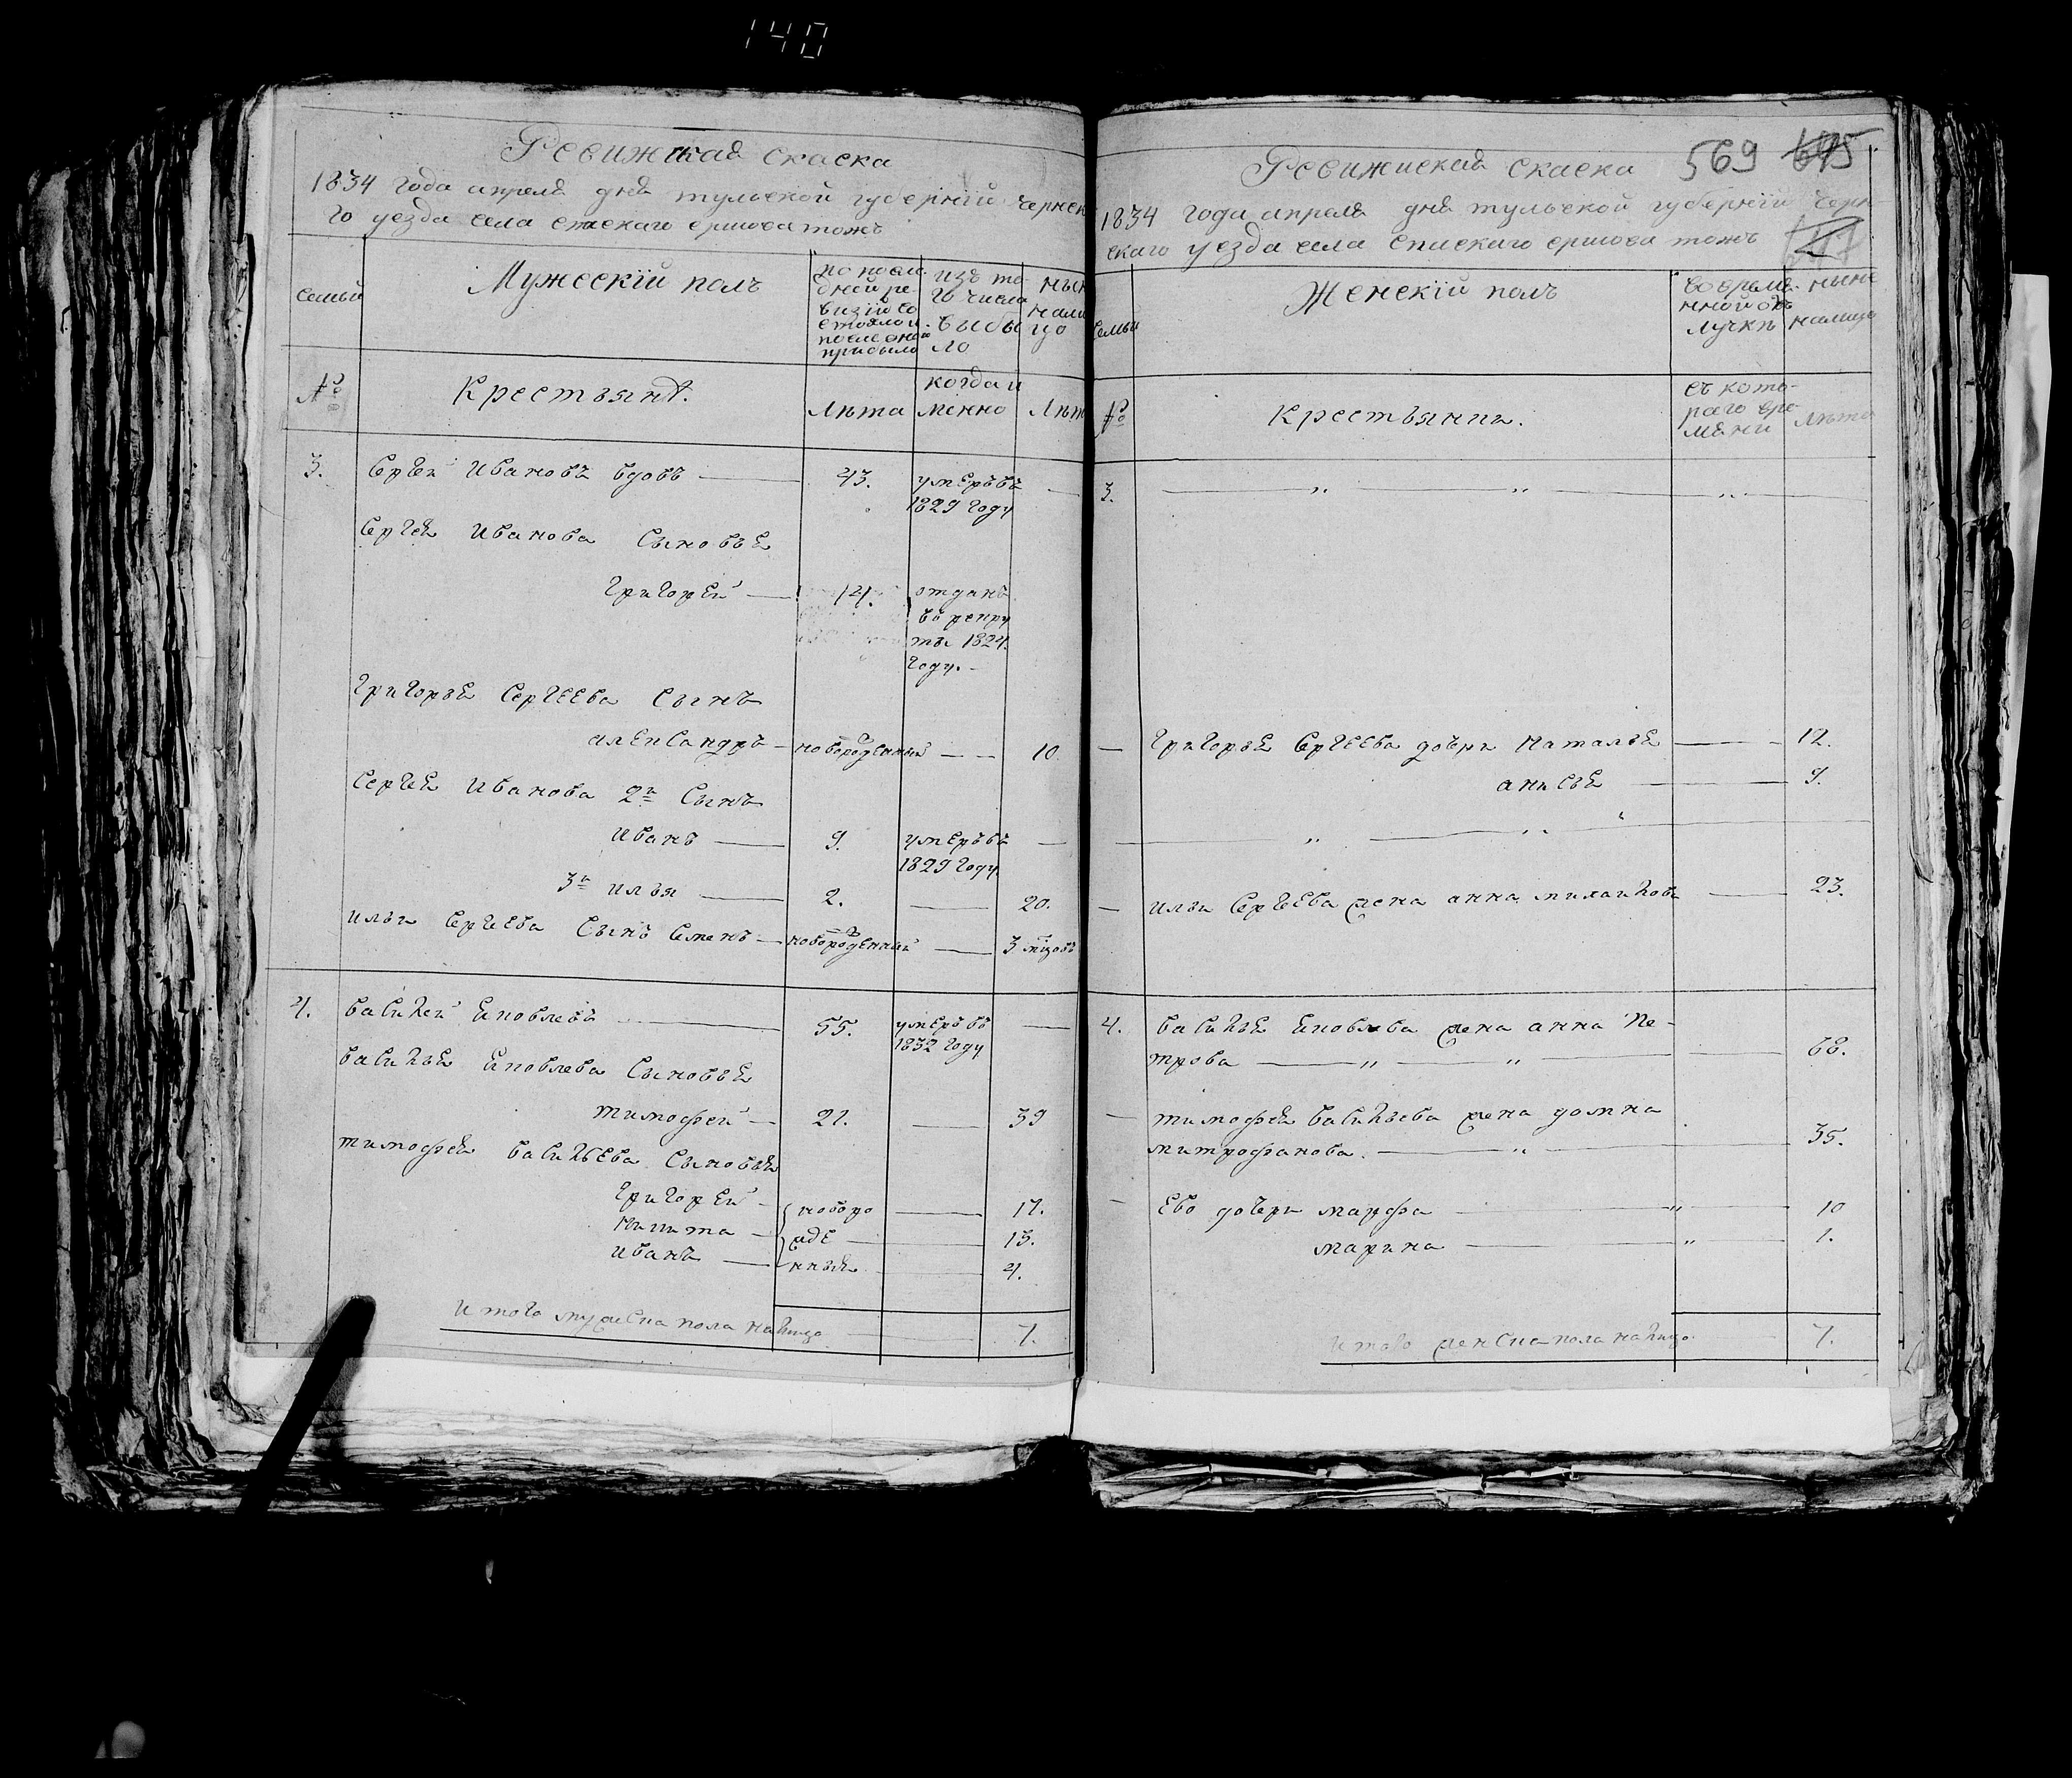 140
Ревижская скаска
1834 года апреля дня тульской губернїй чернск
го уезда села спаскаго ершова тожъ
семьи
Мужескїй полъ
по после
дней ре
визїи со
стояло и
после оной
прибыло
изъ то
го числа
выбы
ло
ныне
нали
цо
№
Крестьянѣ.
Лѣта
когда и
мѣнно
Лѣта
3. Сергей Ивановъ вдовъ 43. умеръ въ
1829 году
Сергея Иванова Сыновья
Григорей 14. отданъ
въ рекру
ты 1824.
году.
Григорья Сергеева Сынъ
александръ новорожденный 10
Сергея Иванова 2й Сынъ
Иванъ 9. умеръ въ
1829 году
3й илья 2. 20.
ильи Сергеева Сынъ Семенъ новорожденный 3 мцовъ
4. Василей Яковлевъ 55. умеръ въ
1832 году
Василья Яковлева Сыновья
тимофей 21. 39
тимофея Васильева Сыновья
Григорей новоро 17.
Никита жде 13.
Иванъ нныя 4.
Итого мужеска пола налицо 7.
569 645
Ревижиская скаска
1834 года апреля дня тульской губернїй черн
скаго уезда села спаскаго ершова тожъ
семьи
Женскїй полъ
во време
нной от
лучкѣ
ныне
налицо
№
Крестьянки.
съ кото
раго вре
мѣни
Лѣта
3.
Григорья Сергеева дочри Наталья 12.
анисья 9.
ильи Сергеева жена анна михаилова 23.
4. Василья Яковлева жена анна Пе-
трова 68.
тимофея Васильева жена домна
митрофанова. 35.
Ево дочери марфа 10
марина 1.
Итого женска пола налицо 7.